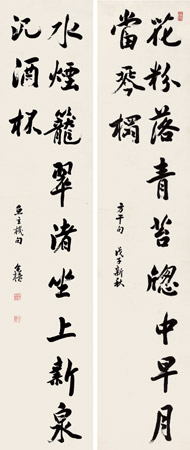 花粉落青苔牕中早月
當琴榻
方干句 戊子新秋
水煙籠翠渚坐上新泉
氾酒杯
魚玄機句